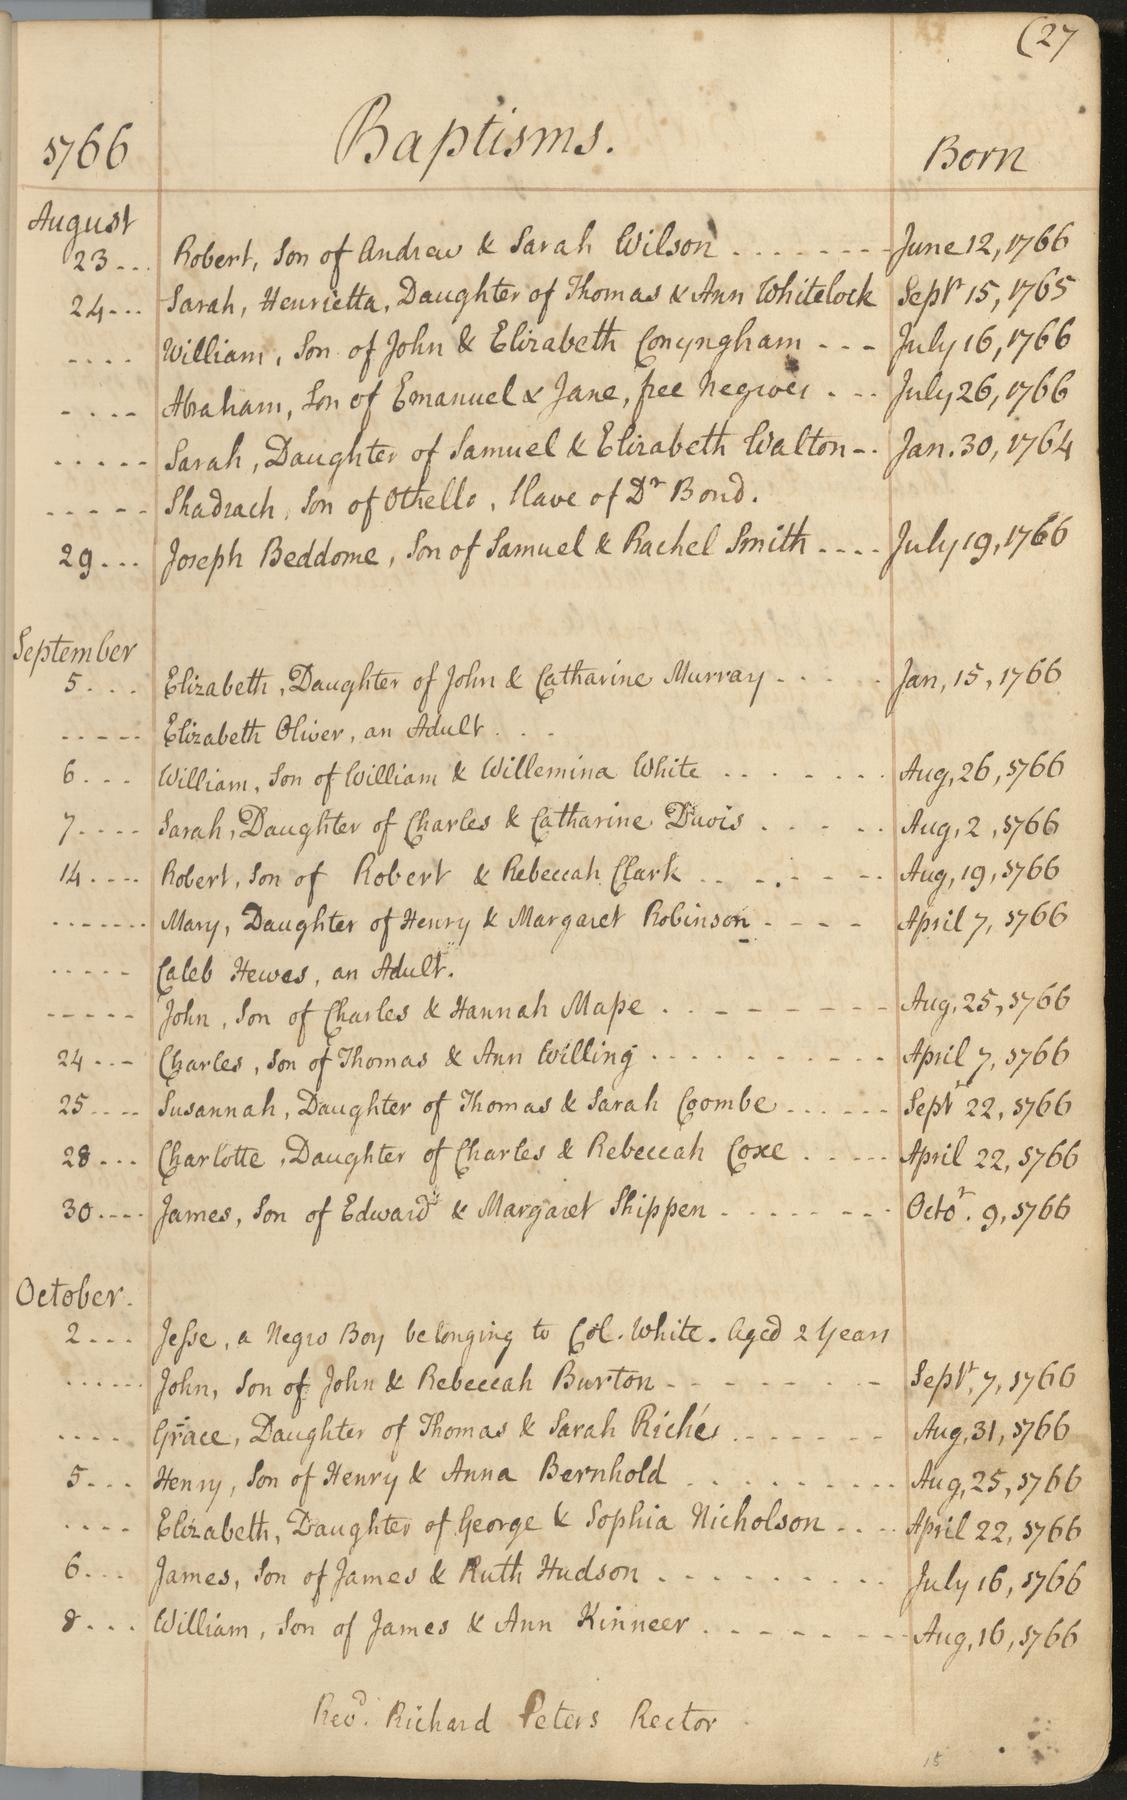 (27
1766 Baptisms. Born
August
23... Robert, Son of Andrew & Sarah Wilson ....... June 12, 1766
24... Sarah, Henrietta, Daughter of Thomas & Ann Whitelock Sepr 15, 1765
.... William, Son of John & Elizabeth Conyngham --- July 16, 1766
.... Abraham, Son of Emanuel & Jane, free Negroes ... July 26, 1766
..... Sarah, Daughter of Samuel & Elizabeth Walton -. Jan. 30, 1764
..... Shadrach, Son of Othello, Slave of Dr Bond.
29... Joseph Beddome, Son of Samuel & Rachel Smith .... July 19, 1766
September
5... Elizabeth, Daughter of John & Catharine Murray ..... Jan, 15, 1766
..... Elizabeth Oliver, an Adult...
6... William, Son of William & Willemina White ....... Aug, 26, 1766
7.... Sarah, Daughter of Charles & Catharine Davis ..... Aug, 2, 1766
14.... Robert, Son of Robert & Rebeccah Clark ....... Aug, 19, 1766
....... Mary, Daughter of Henry & Margaret Robinson .... April 7, 1766
..... Caleb Hewes, an Adult.
..... John, Son of Charles & Hannah Mape ........ Aug, 25, 1766
24... Charles, Son of Thomas & Ann Willing .......... April 7, 1766
25.... Susannah, Daughter of Thomas & Sarah Coombe ...... Sepr 22, 1766
28... Charlotte, Daughter of Charles & Rebeccah Coxe ..... April 22, 1766
30.... James, Son of Edward & Margaret Shippen ........ Octor. 9, 1766
October.
2... Jesse, a Negro Boy belonging to Col. White. Aged 2 Years
...... John, Son of John & Rebeccah Burton -------- Sepr, 7, 1766
.... Grace, Daughter of Thomas & Sarah Riché ...... Aug, 31, 1766
5... Henry, Son of Henry & Anna Bernhold ......... Aug, 25, 1766
.... Elizabeth, Daughter of George & Sophia Nicholson .... April 22, 1766
6... James, Son of James & Ruth Hudson ......... July 16, 1766
8... William, Son of James & Ann Kinneer ........ Aug, 16, 1766
Revd. Richard Peters Rector
15